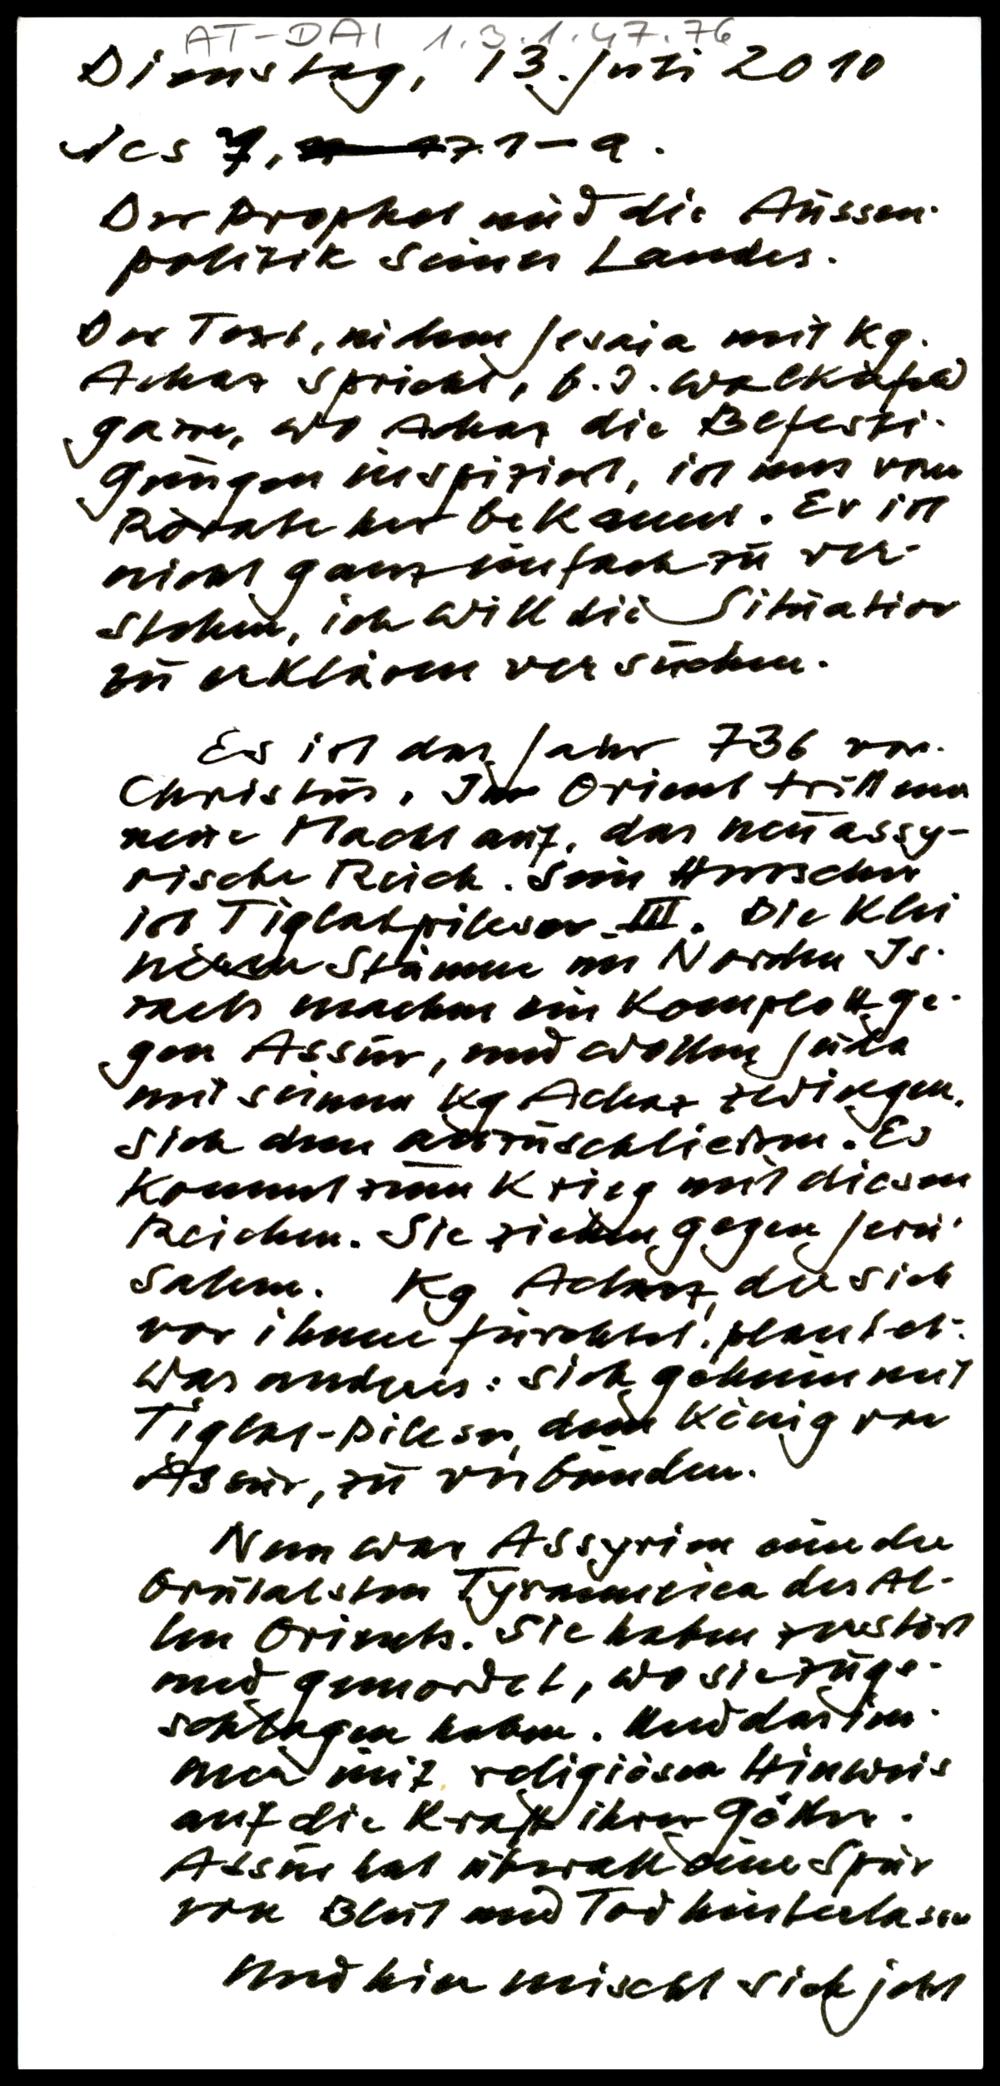 AT-DAI 1.3.1.47.76
Dienstag, 13. Juli 2010
Jes 7, 1-9.
Der Prophet und die Aussen-
politik seines Landes.
Der Text, in dem Jesaja mit Kg.
Achaz spricht, b. d. Walkerfeld
gasse, wo Achaz die Befesti-
gungen inspiziert, ist uns vom
Rorate her bekannt. Er ist
nicht ganz einfach zu ver-
stehen, ich will die Situation
zu erklären versuchen.
Es ist das Jahr 736 vor
Christus. Im Orient tritt eine
neue Macht auf, das neuassy-
rische Reich. Sein Herrscher
ist Tiglatpileser III. Die klei
neren Stämme im Norden Is-
raels machen ein Komplott ge-
gen Assur, und wollen Juda
mit seinem Kg Achaz zwingen,
sich dem anzuschliessen. Es
kommt zum Krieg mit diesen
Reichen. Sie ziehen gegen Jeru-
salem. Kg Achaz, der sich
vor ihnen fürchtet, plant et-
was anderes: sich geheim mit
Tiglat-Pileser, dem König von
Assur, zu verbünden.
Nun war Assyrien eine der
brutalsten Tyranneien des Al-
ten Orients. Sie haben zerstört
und gemordet, wo sie zuge-
schlagen haben. Und das im-
mer mit religiösem Hinweis
auf die Kraft ihrer Götter.
Assur hat überall eine Spur
von Blut und Tod hinterlassen
Und hier mischt sich jetzt